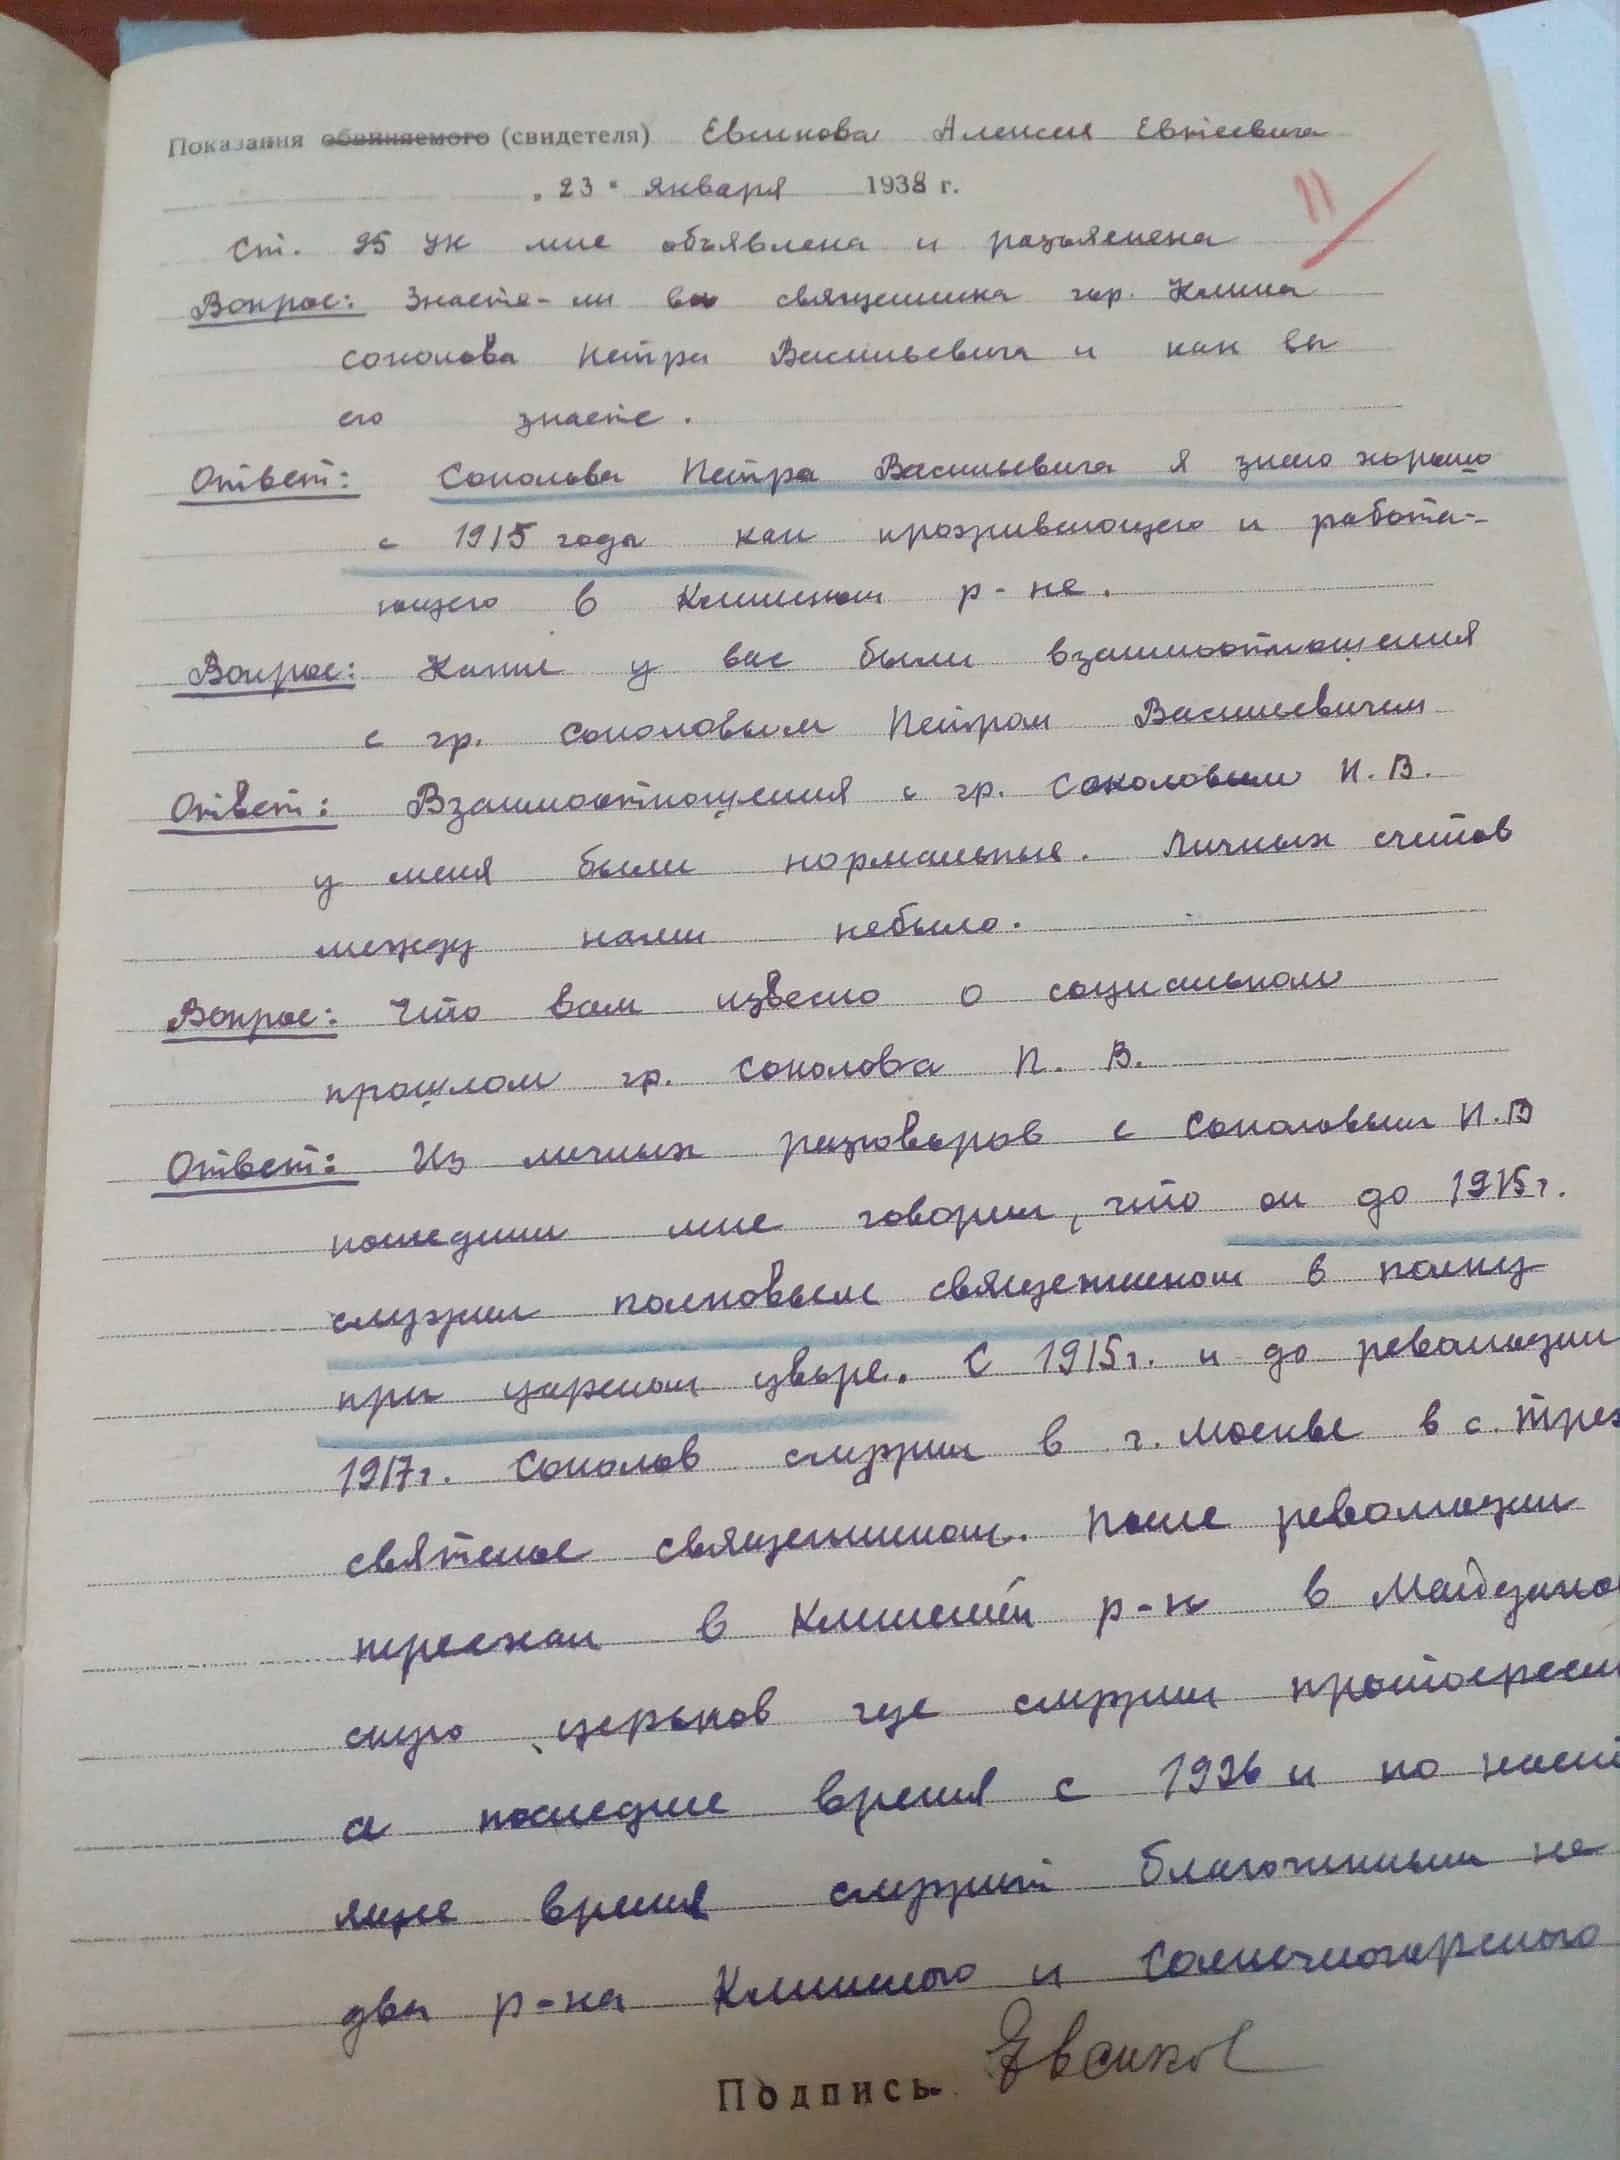 Показания обвиняемого (свидетеля) Евсикова Алексея Евтеевича
„23" января 1938 г.
11
Ст. 95 УК мне объявлена и разъяснена
Вопрос: Знаете-ли вы священника гор. Клина
Соколова Петра Васильевича и как вы
его знаете.
Ответ: Соколова Петра Васильевича я знаю хорошо
с 1915 года как проживающего и работа-
ющего в Клинском р-не.
Вопрос: Какие у вас были взаимоотношения
с гр. Соколовым Петром Васильевичем
Ответ: Взаимоотношения с гр. Соколовым П. В.
у меня были нормальные. Личных счетов
между нами небыло.
Вопрос: Что вам извесно о социальном
прошлом гр. Соколова П. В.
Ответ: Из личных разговоров с Соколовым П. В
последний мне говорил, что он до 1915 г.
служил полковым священником в полку
при царском дворе. С 1915 г. и до революции
1917 г. Соколов служил в г. Москве в с. Трех
святское священником. После революции
переехал в Клинский р-н в Майданов
скую церьков где служил протоереем
а последнее время с 1936 и по насто
ящее время служит благочинным на
два р-на Клинского и Солнечногорского
Подпись Евсиков